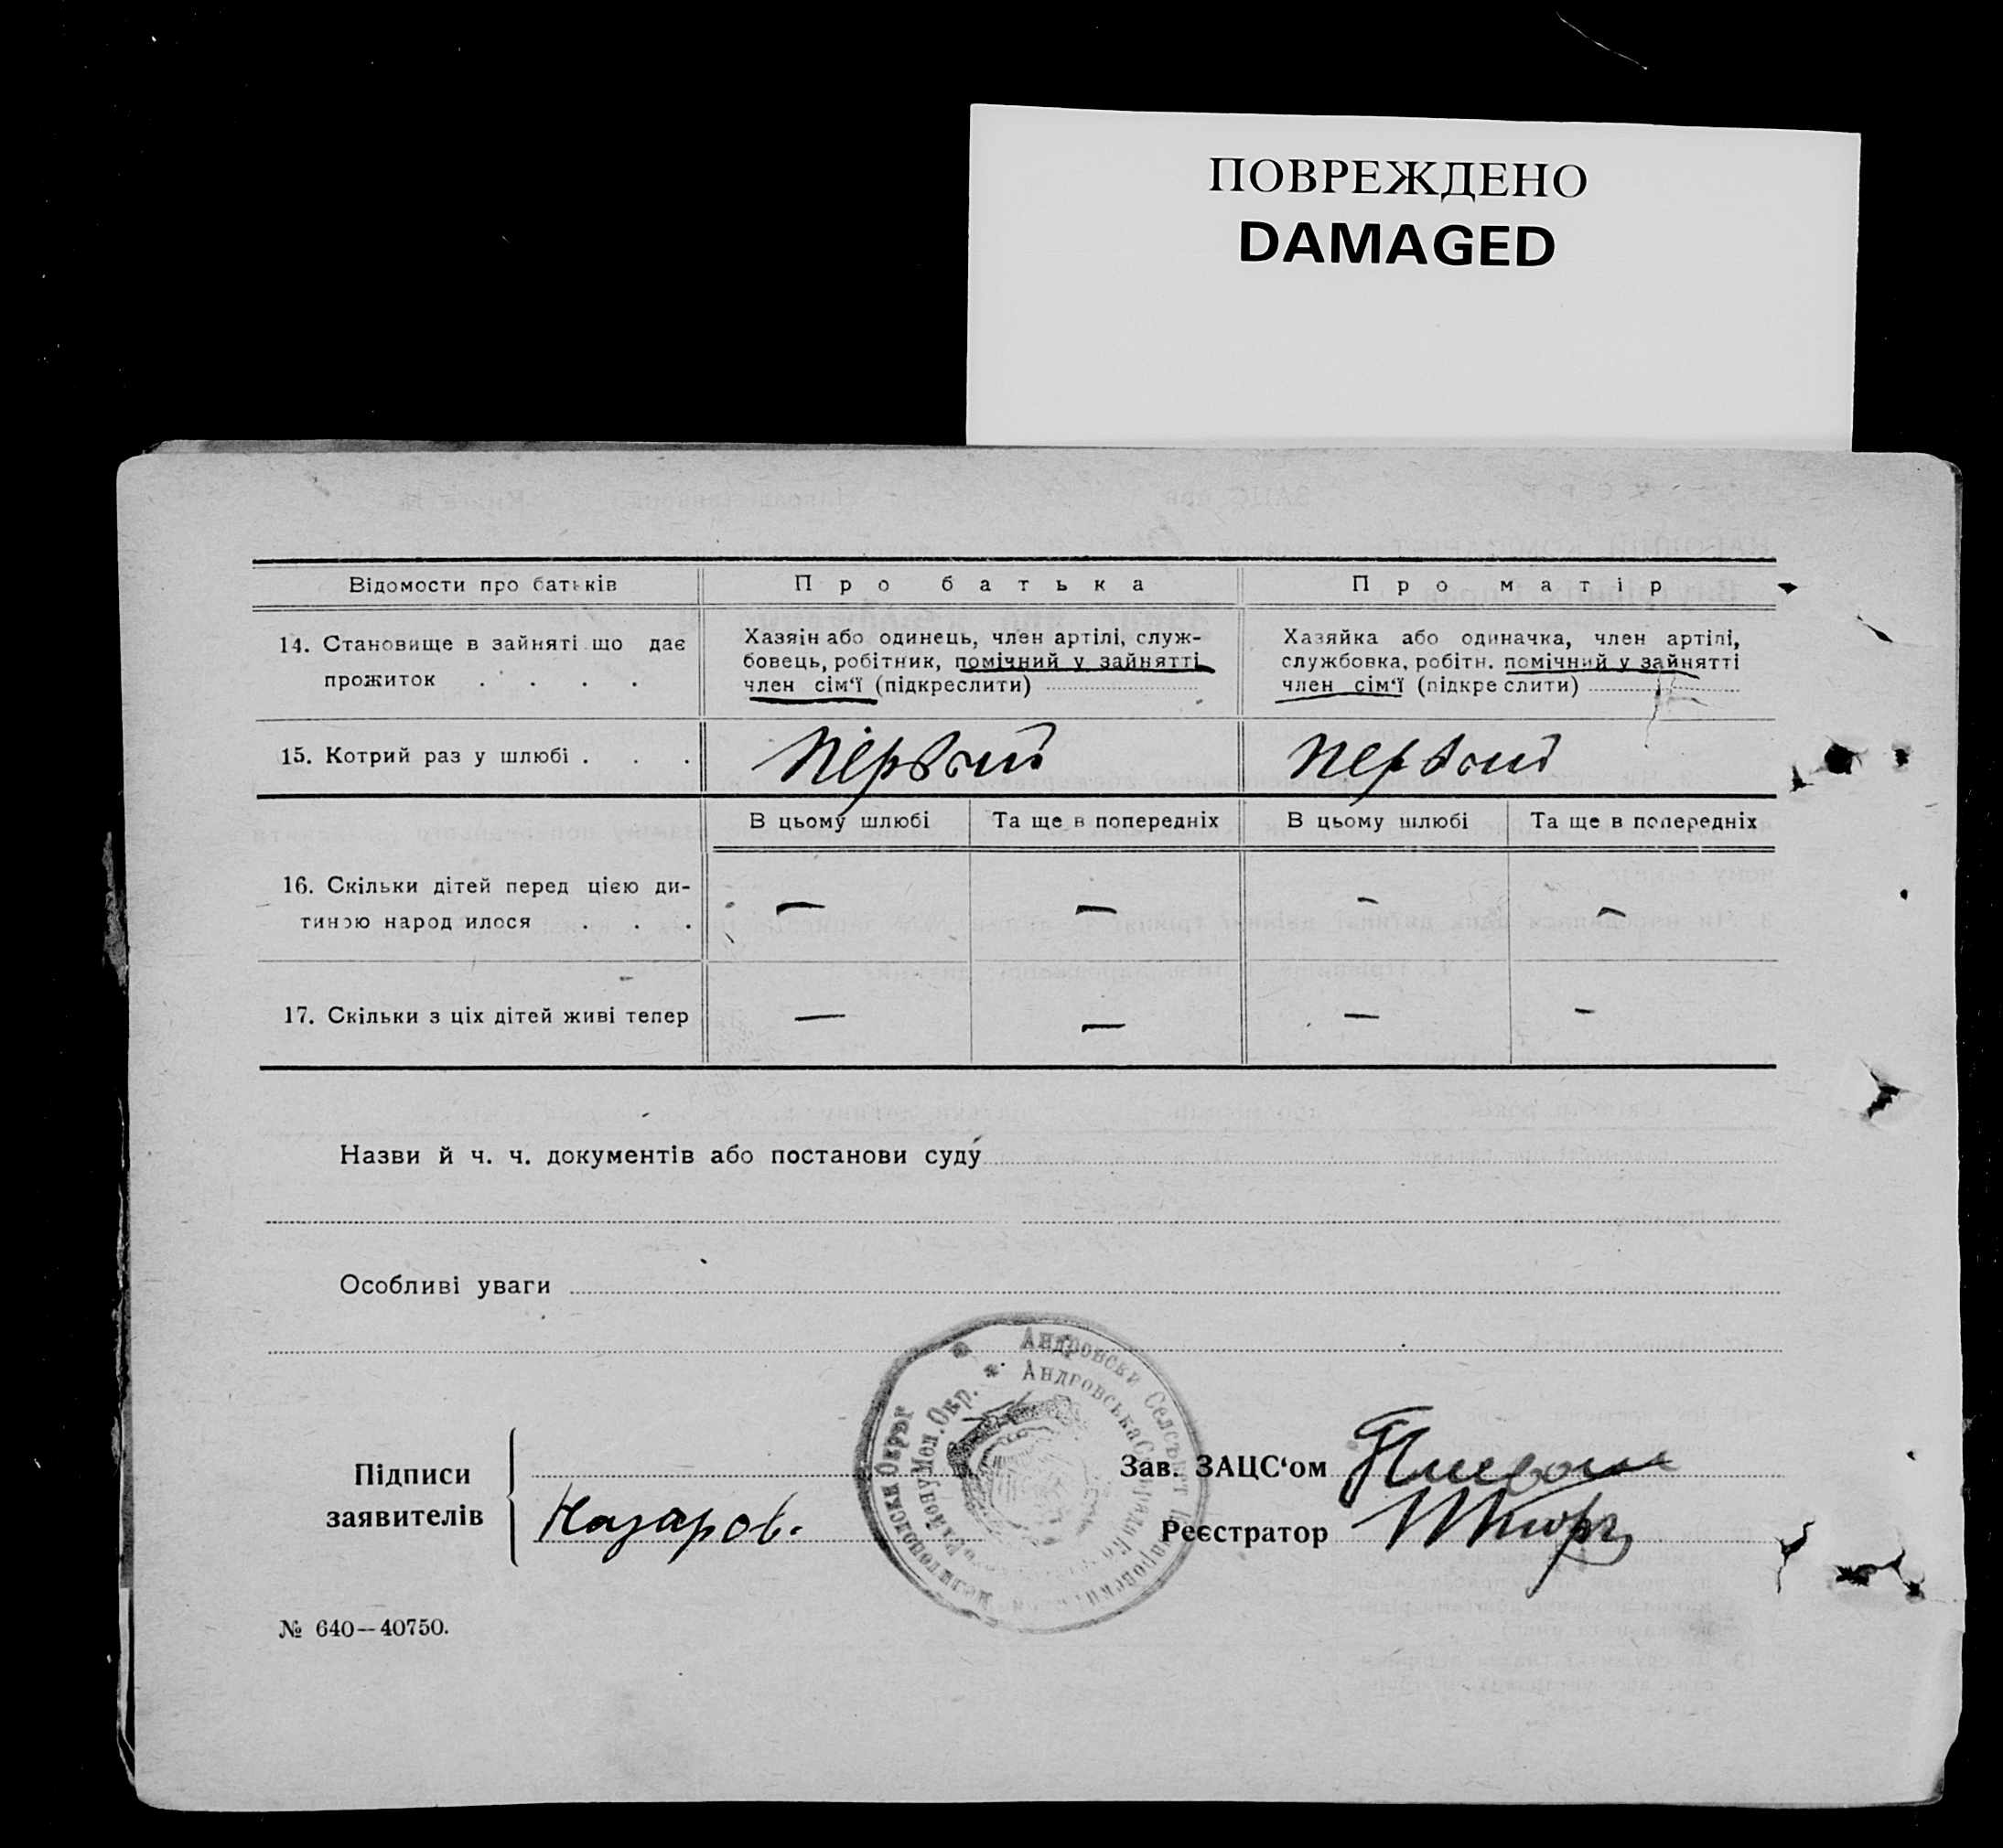 ПОВРЕЖДЕНО
DAMAGED
Відомости про батьків
Про батька
Про матір
14. Становище в зайняті що дає
прожиток . . . .
Хазяїн або одинець, член артілі, служ-
бовець, робітник, помічний у зайнятті
член сім‘ї (підкреслити)
Хазяйка або одиначка, член артілі,
службовка, робітн. помічний у зайнятті
член сім‘ї (підкреслити)
15. Котрий раз у шлюбі . . .
Первый
Первый
В цьому шлюбі
Та ще в попередніх
В цьому шлюбі
Та ще в попередніх
16. Скільки дітей перед цією ди-
тиною народилося . . .
— — – –
17. Скільки з ціх дітей живі тепер
— — — –
Назви й ч. ч. документів або постанови суду
Особливі уваги
Андровски Селсъвет
Мелитополски Окръг
Андровська
Мел. Окр.
Підписи
заявителів
Назаров.
Зав. ЗАЦС‘ом
Реєстратор
№ 640—40750.